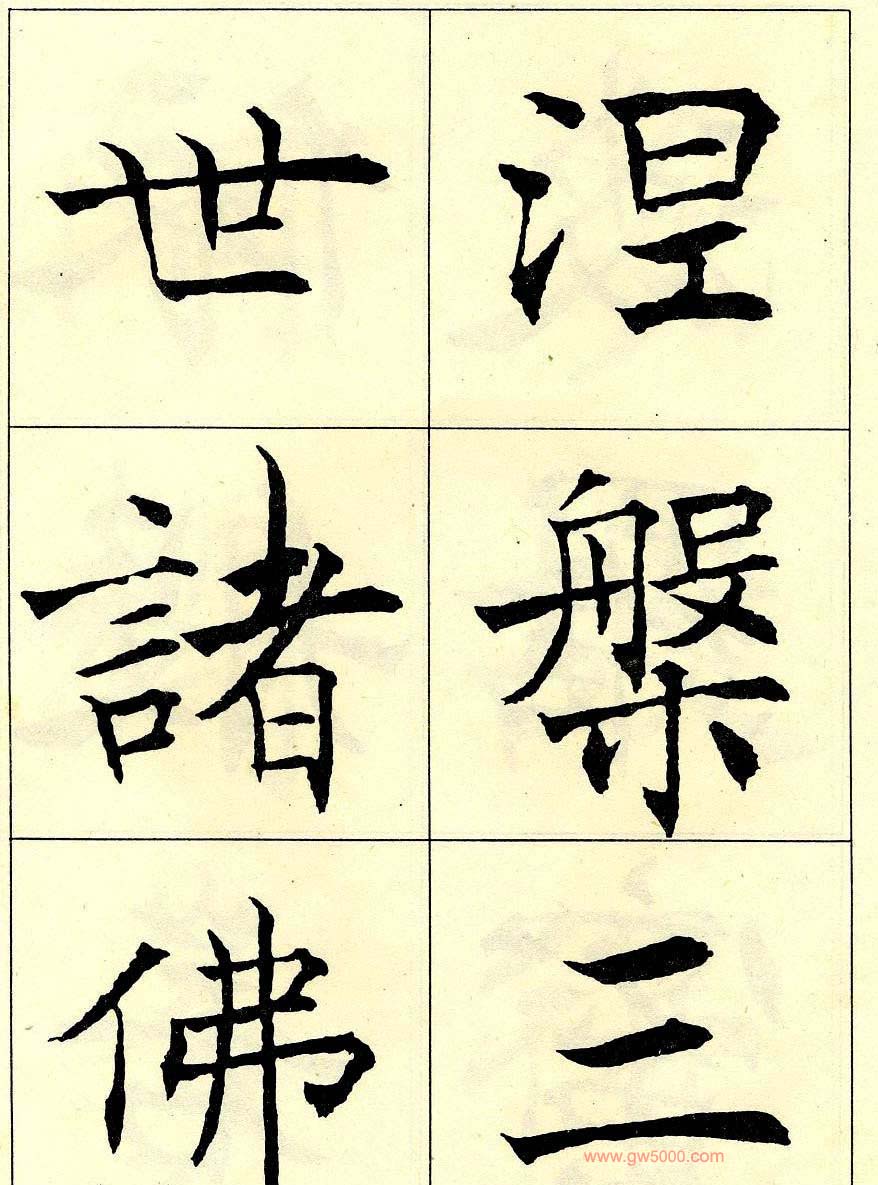 涅槃三
世諸佛
www.gw5000.com